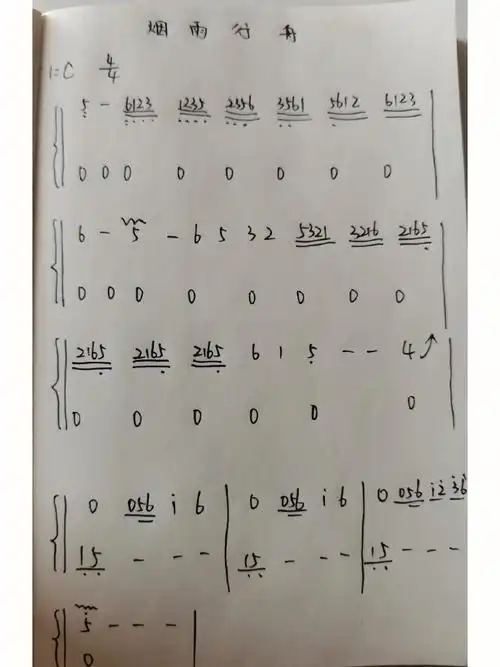 烟雨行舟
1=C 4/4
5 - 6123 1235 2356 3561 5612 6123
0 0 0 0 0 0 0 0
6 - 5 - 6 5 3 2 5321 3216 2165
0 0 0 0 0 0 0 0
2165 2165 2165 6 1 5 - - 4
0 0 0 0 0 0
0 056 i 6 | 0 056 i 6 | 0 056 i 2 3 6
15 - - - | 15 - - - | 15 - - -
5 - - - |
0